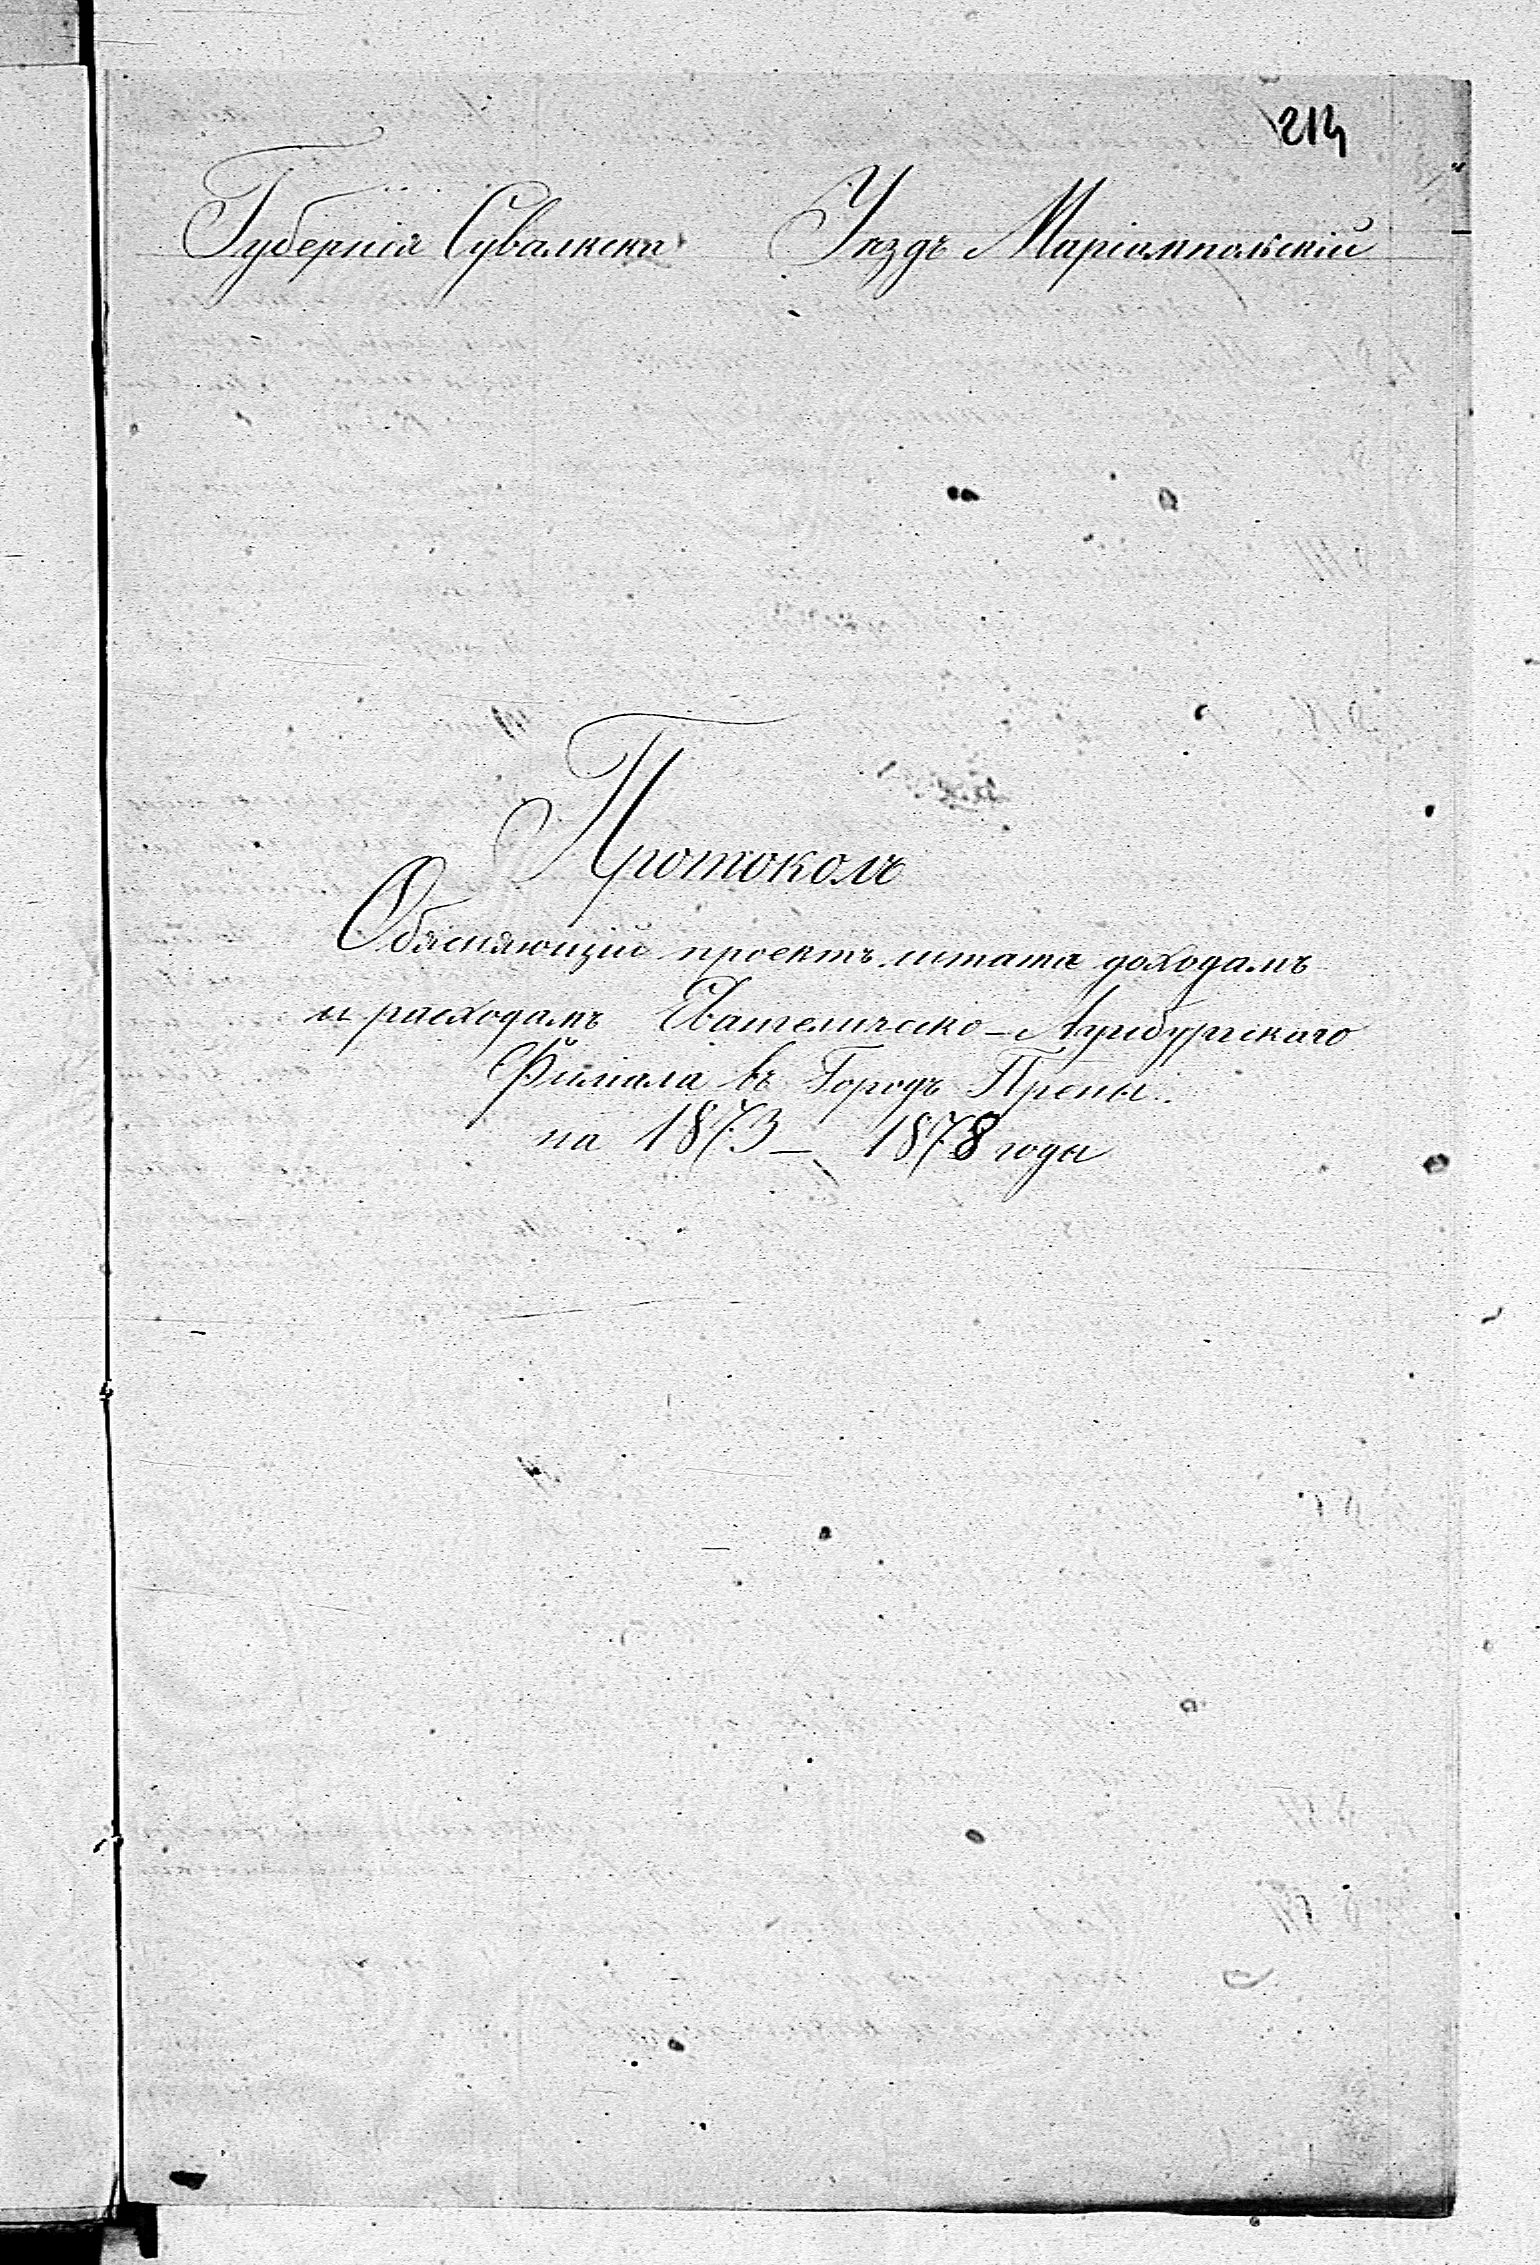 214
Губернія Сувалкска Уѣздъ Маріампольскій
Протоколъ
Обясняющій проектъ штата доходамъ
и расходамъ Евангелическо-Аугсбургскаго
Филіала въ Городѣ Прены
на 1873 – 1878 годы